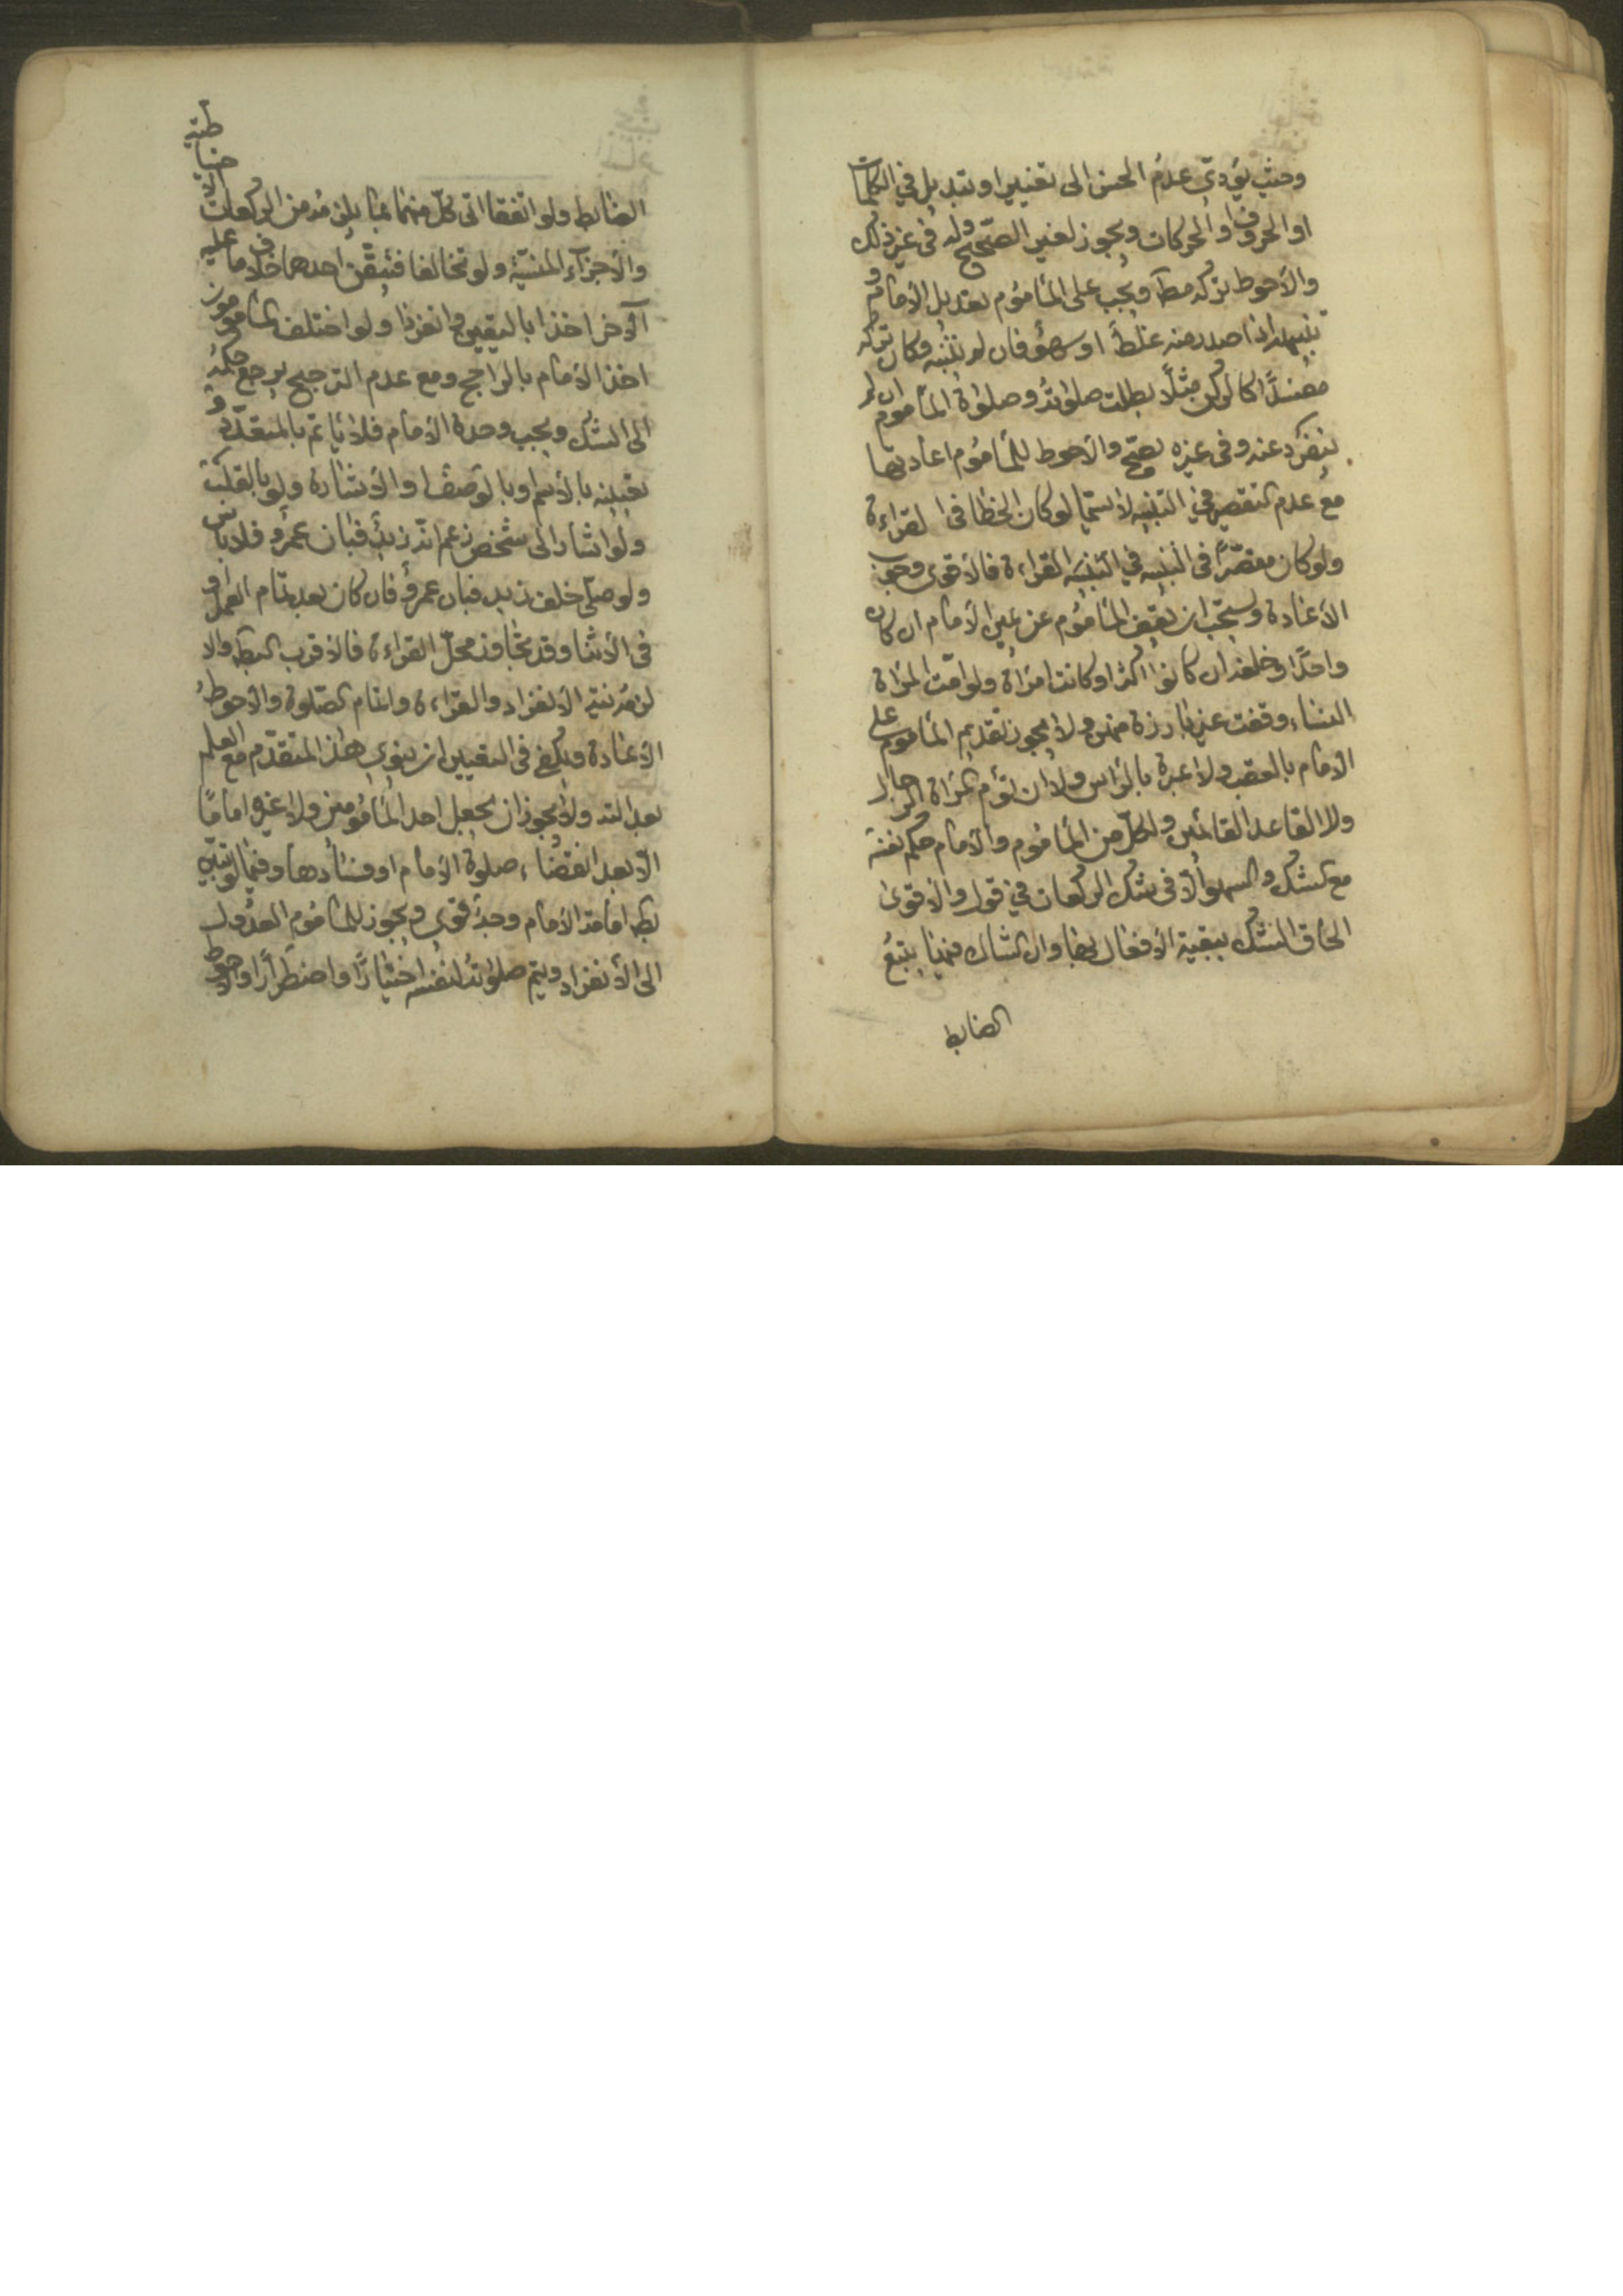 وحيث يؤدّى عدم الحسن الى تغيير او تبديل في الكلمات
او الحروف او الحركات ويجوز لغير الصّحيح وله فى غير ذلك
والأحوط تركه مطـ ويجب على المأموم تعديل الأمام و
تنبيهه اذا صدر منه غلط أو سهو فان لم يتنبّه وكان تركه
مفسدًا كالركن مثلًا بطلت صلوته وصلوة المأموم ان لم
ينفرد عنه وفى غيره تصحّ والأحوط للمأموم اعادتها
مع عدم التقصير في التنبيه لا سيّما لو كان الخطا فى القراءة
ولو كان مقصّرًا فى التنبيه في القراءة فالأقوى وجوب
الأعادة ويستحبّ ان يقف المأموم عن يمين الأمام ان كان
واحدًا وخلفه ان كانوا اكثر او كانت امرأة ولو امّت المرأة
النساء وقفت غير بارزة منهن ولا يجوز تقديم المأموم على
الأمام بالعقب ولا عبرة بالرأس ولا ان تؤم المرأة الرجال
ولا القاعد القائمين ولكلّ من المأموم والأمام حكم نفسه
مع الشك والسهو الّا فى شك الركعات في قول والأقوى
الحاق الشك ببقية الأفعال بها وان الشاك منهما يتبع
الضابط
الضابط ولو اتفقا اتى كلّ منهما بما يلزمه من الركعات الاحتياطية
والأجزآء المنسيّة ولو تخالفا فتيقّن احدهما خلاف ما عليه
الآخر اخذا باليقين وانفردا ولو اختلف المأمومون
اخذ الأمام بالراجح ومع عدم الترجيح يرجع حكمه
الى الشك ويجب وحدة الأمام فلا يأتم بالمتعدّد و
تعيينه بالأسم او بالوصف او الأشارة ولو بالقلب
ولو اشار الى شخص زعم انّه زيد فبان عمرو فلا بأس
ولو صلّى خلف زيد فبان عمرو فان كان بعد تمام العمل او
فى الأثنا وقد تجاوز محلّ القراءة فالأقرب الصحة والا
لزمه نية الأنفراد والقراءة واتمام الصّلوة والأحوط
الأعادة ويكفي فى التعيين ان ينوى هذا المتقدّم مع العلم
بعدالته ولا يجوز ان يجعل احد المأمومين ولا غيره امامًا
الّا بعد انقضاء صلوة الأمام او فسادها وفيما لو تبيّن
بطـ امامة الأمام وجه قوى ويجوز للمأموم العدول
الى الأنفراد ويتم صلوته لنفسه اختيارًا واضطرارًا والأحوط